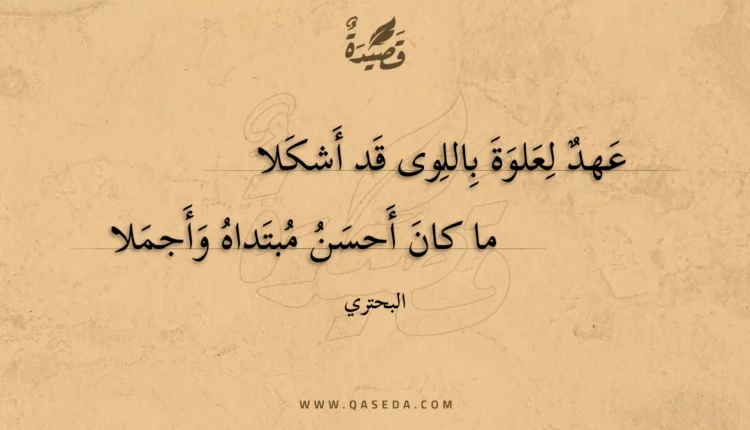 قَصِيْدَةٌ
عَهدٌ لِعَلوَةَ بِاللِوى قَد أَشكَلا
ما كانَ أَحسَنُ مُبتَداهُ وَأَجمَلا
البحتري
WWW.QASEDA.COM